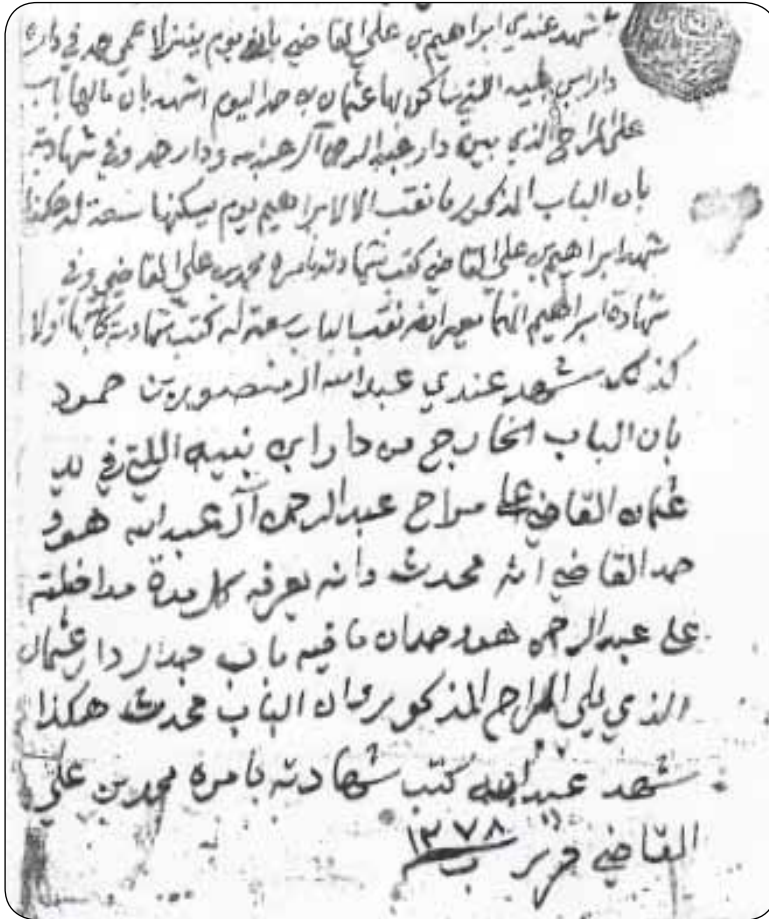 شهد عندي ابراهيم بن علي القاضي بانه يوم ينزل عمي حمد في داره
دار ابن اللتي ساكن بها عثمان بن حمد اليوم اشهد بان مالها باب
على المراح الذي بين دار عبد الرحمن آل عبد الله ودار حمد وفي شهادته
بان الباب المذكور ما نقب الا ابراهيم يوم يسكنها هكذا
شهد ابراهيم بن علي القاضي كتب شهادته بامره محمد بن علي القاضي وفي
شهادة ابراهيم نقب الباب كتب شهادته كاتبها اولا
كذلك شهد عندي عبد الله المنصور بن حمود
بان الباب الخارج من دار ابن اللتي في يد
عثمان القاضي على مراح عبد الرحمن آل عبد الله هو و
حمد القاضي انه محدث وانه يعرفه كل مدة مداخلته
على عبد الرحمن هو وحمد ان ما فيه باب جدار دار عثمان
الذي يلي المراح المذكور وان الباب محدث هكذا
شهد عبد الله كتب شهادته بامره محمد بن علي
القاضي حرر ١٢٧٨